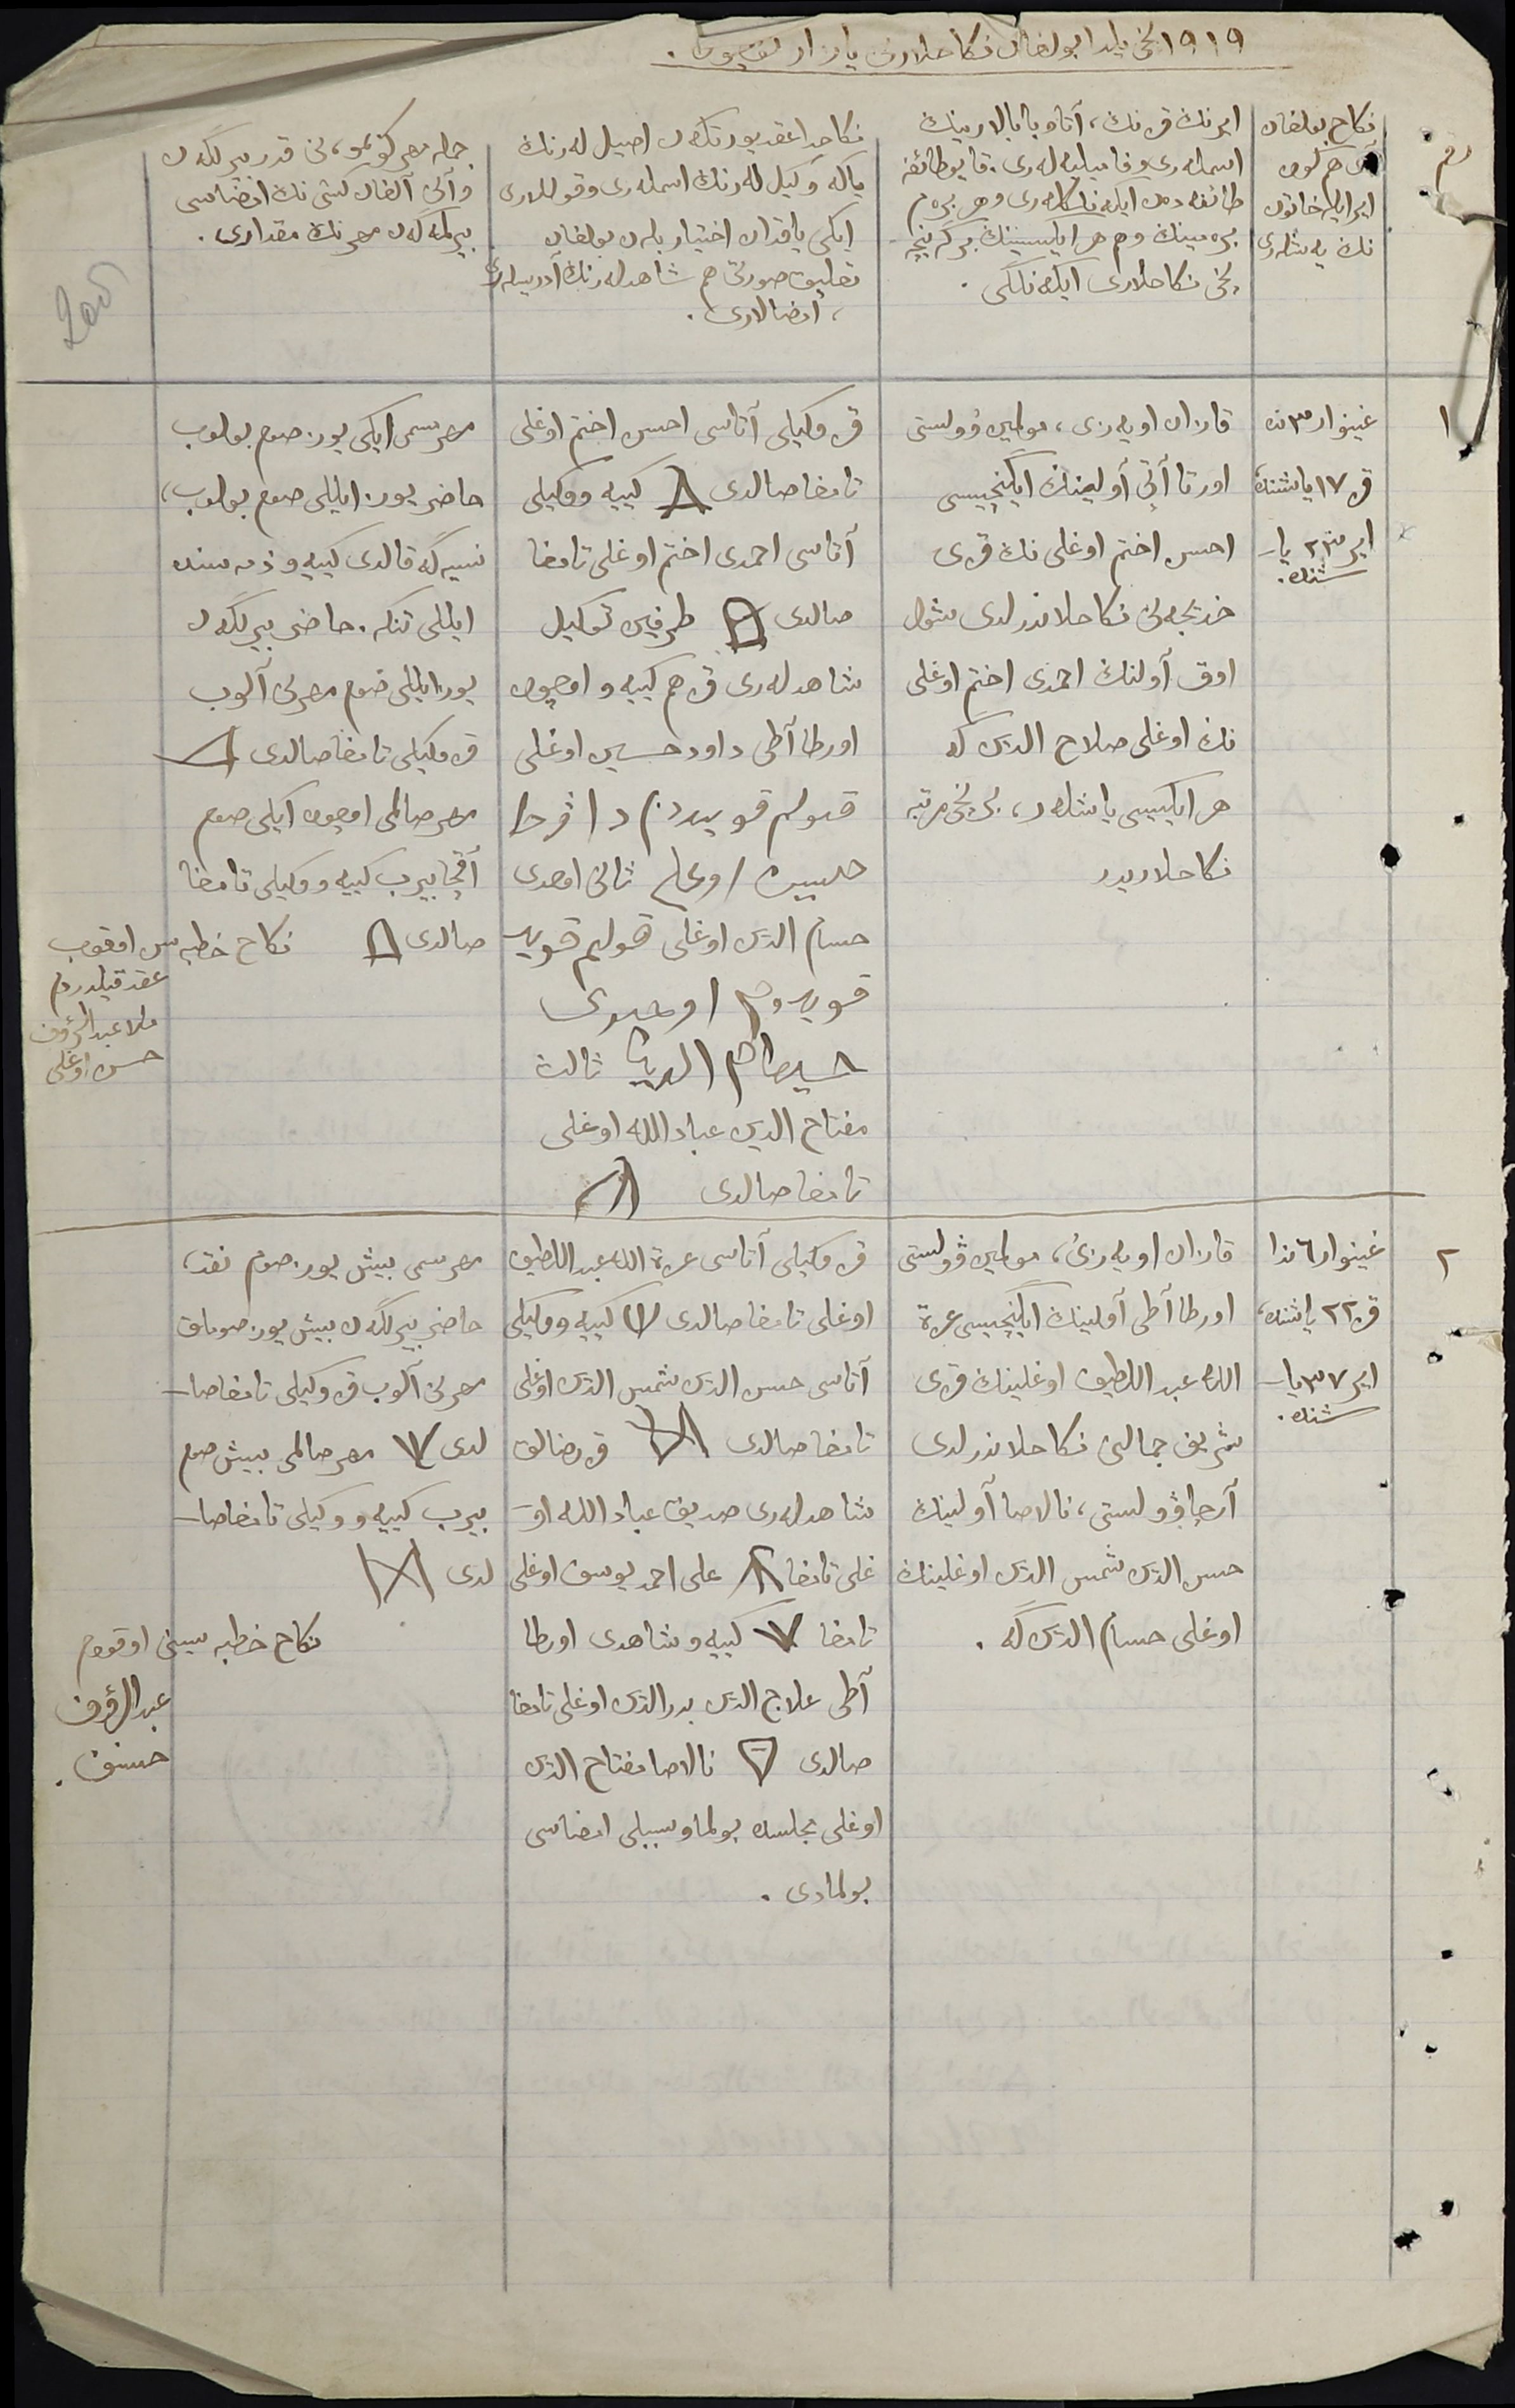 ١٩١٩ نچی یلدا بولغان نکاحلارنی یازار
رم
نکاح بولغان
آی هم کون
ایر ایله خاتون
نڭ یه شلری
ایرنڭ قزنڭ، آتا و بابالارینڭ
اسملەری و فامیلیه لەری. قایو طائفه
طائفه دن ایکەنلکلەری و هر برە
برە سینڭ و هم هر ایکیسینڭ
نچی نکاحلاری ایکەنلگی.
نکاحدا عقد یورتکەن اصیل لەرنڭ
یاکه وکیل لەرنڭ اسملەری و قوللاری
ایکی یاقدان اختیار بلەن بولغان
تعلیق صورتی هم شاهدلەرنڭ آدریسلەری
، امضالاری.
جمله مهر کۆبمو، نی قدر بیرلگەن
و آنی آلغان کشی نڭ امضاسی
بیرلمەگەن مهرنڭ مقداری.
١
غینوار ٣ ندە
قز ١٧ یاشندە،
ایر ٢٣ یا-
شندە.
قازان اویەزی، وولستی
اورتا آتی آولینڭ ایکنچیسی
احسن اختم اوغلی نڭ قزی
خدیجەنی نکاحلاندرلدی شول
اوق آولنڭ احمدی اختم اوغلی
نڭ اوغلی صلاح الدین گە
هر ایکیسی یاشلەر، برنچی مرتبه
نکاحلاریدر
قز وکیلی آتاسی احسن اختم اوغلی
تامغا صالدی کییه و وکیلی
آتاسی احمدی اختم اوغلی تامغا
صالدی طرفین توکیل
شاهدلەری قز هم کییه و اوچون
اورطا آطی داود حسین اوغلی
قولم قویدم
ثانی اوحدی
حسام الدین اوغلی قولم قوید
قویدوم اوحدی
حسام الدین ثالث
مفتاح الدین عباد الله اوغلی
تامغا صالدی
مهر مسمی ایکی یوز صوم بولوب
حاضر یوز ایللی صوم بولوب،
نسیه گە قالدی کییه و ذمەسندە
ایللی تنکه. حاضر بیرلگەن
یوز ایللی صوم مهرنی آلوب
قز وکیلی تامغا صالدی
مهر صالمی اوچون ایکی صوم
آقچا بیرب کییه و وکیلی تامغا
صالدی نکاح خطبەسن اوقوب
عقد قیلدردم
ملا عبدالرؤف
حسن اوغلی
٢
غینوار ٦ ندا
قز ٢٢ یاشندە،
ایر ٣٧ یا-
شندە.
قازان اویەزی، ڤولستی
اورطا آطی آولینڭ ایکنچیسی عزة
الله عبد اللطیف اوغلینڭ قزی
شریف جمالنی نکاحلاندرلدی
آرچا ڤولستی، نالاصا آولینڭ
حسن الدین شمس الدین اوغلینڭ
اوغلی حسام الدین گە.
قز وکیلی آتاسی عزة الله عبد اللطیف
اوغلی تامغا صالدی کییه و وکیلی
آتاسی حسن الدین شمس الدین اوغلی
تامغا صالدی قز رضالق
شاهدلەری صدیق عباد الله او-
غلی تامغا علی احمد یوسف اوغلی
تامغا کییه و شاهدی اورطا
آطی علاج الدین بدر الدین اوغلی تامغا
صالدی نالاصا مفتاح الدین
اوغلی مجلسدە بولماو سببلی امضاسی
بولمادی.
مهر مسمی بیش یوز صوم نقد،
حاضر بیرلگەن بیش یوز صوملق
مهرنی آلوب قز وکیلی تامغا صا-
لدی مهر صالمی بیش صوم
بیرب کییه و وکیلی تامغا صا-
لدی
نکاح خطبه سینی اوقودم
عبد الرؤف
حسنوف.